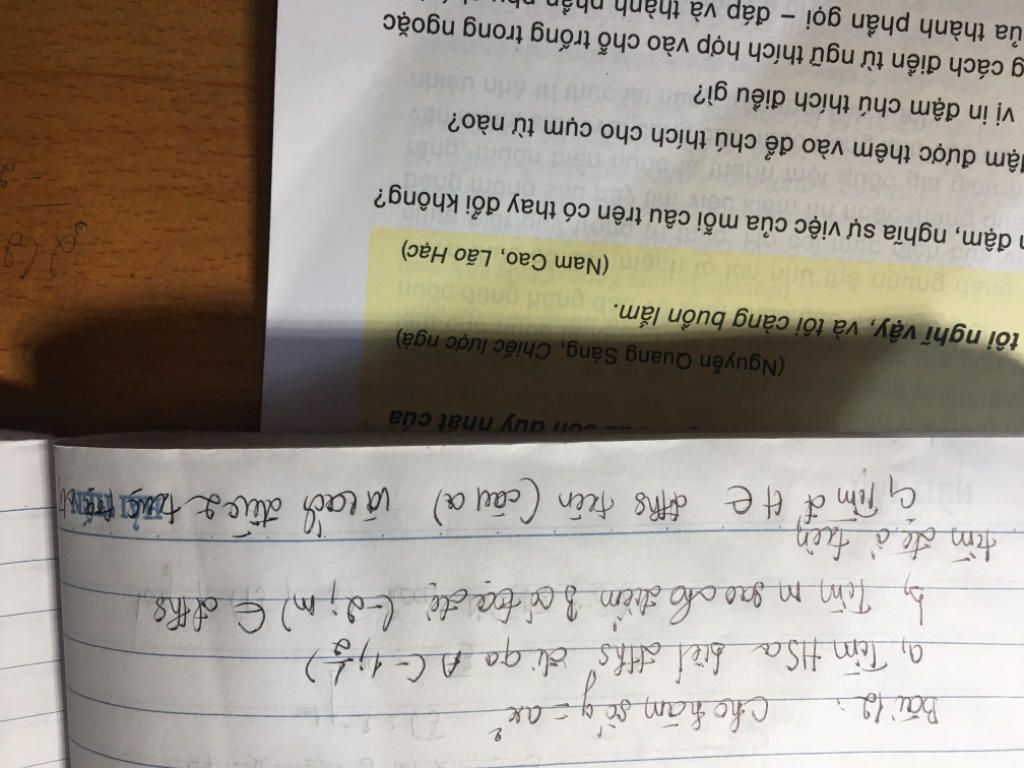 Bài 12: Cho hàm số y = ax²
a, Tìm HSa biết đths đi qa A (-1; 1/2)
b, Tìm m sao cho điểm B có tọa độ (-2; m) ∈ đths
tìm đc ở trên
c, Tìm đ' H ∈ đths trên (câu a) và cách đều 2 trục
duy nhất của
(Nguyễn Quang Sáng, Chiếc lược ngà)
tôi nghĩ vậy, và tôi càng buồn lắm.
(Nam Cao, Lão Hạc)
đậm, nghĩa sự việc của mỗi câu trên có thay đổi không?
được thêm vào để chú thích cho cụm từ nào?
vị in đậm chú thích điều gì?
cách điền từ ngữ thích hợp vào chỗ trống trong ngoặc
thành phần gọi – đáp và thành phần